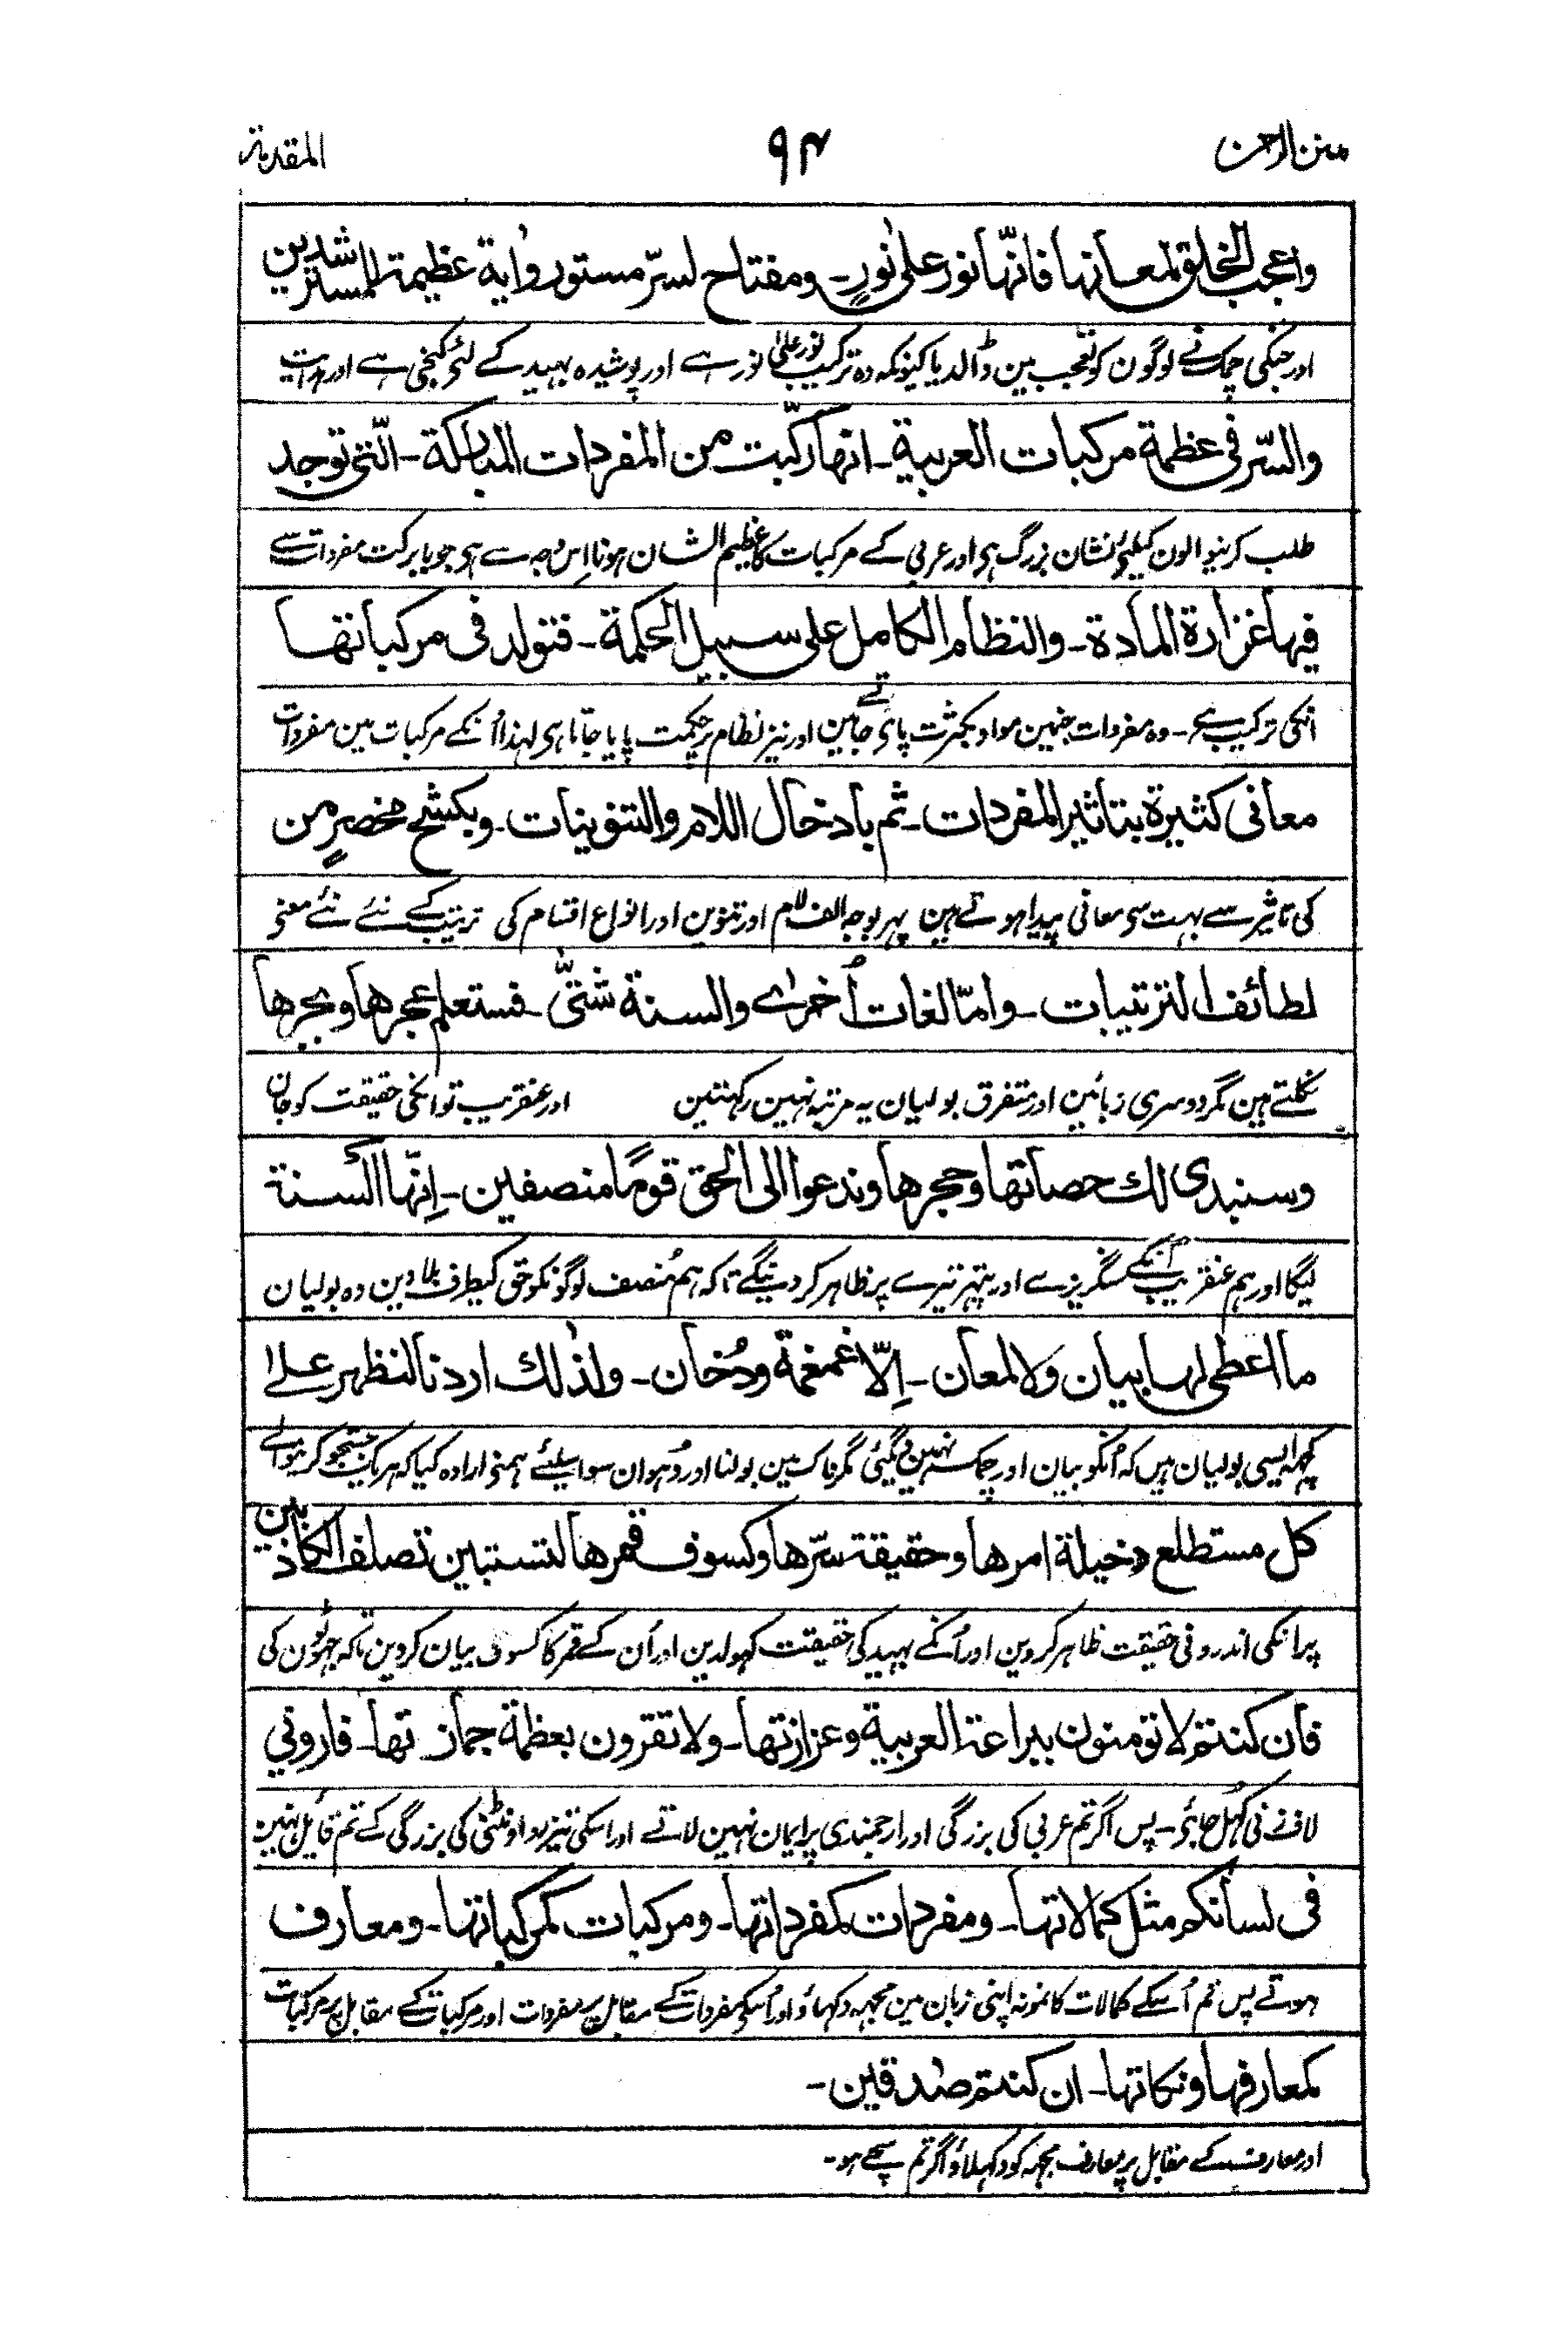 منن الرحمن ۹۴ المقدمة
واعجب الخلق لمعانها فانّها نور علیٰ نورٍ۔ ومفتاح لسرّ مستور واٰیة عظیمة للمسترشدین
اور جنکی چمک نے لوگون کو تعجب مین ڈالدیا کیونکہ وہ ترکیب نور علیٰ نور ہے اور پوشیدہ بہید کے لئے کنجی ہے اور ہدایت
والسّر فی عظمة مرکبات العربیة۔ انها رکّبت من المفردات المبارکة۔ الّتی توجد
طلب کرنیوالون کیلئے نشان بزرگ ہی اور عربی کے مرکبات کا عظیم الشان ہونا اِس وجہ سے ہی جو بابرکت مفردات سے
فیها غزارة المادة۔ والنظام الکامل علی سبیل الحکمة۔ فتولد فی مرکباتها
انکی ترکیب ہے۔ وہ مفردات جنہین مواد بکثرت پائے جاتے ہین اور نیز نظام پر حکمت پایا جاتا ہی لہذا اُنکے مرکبات مین مفردات
معانی کثیرة بتاثیر المفردات۔ ثم بادخال اللام والتنوینات۔ وبکشح مخصرٍ من
کی تاثیر سے بہت سی معانی پیدا ہوتے ہین پہر بوجہ الف لام اور تنوین اور انواع اقسام کی ترتیب کے نئے نئے معنی
لطائف الترتیبات۔ وامّا لغات اُخرٰی والسنة شتّٰی۔ فستعلم عجرها وبجرها
نکلتے ہین مگر دوسری زبانین اور متفرق بولیان یہ مرتبہ نہین رکہتین اور عنقریب تو انکی حقیقت کو جان
وسنبدی لك حصاتها وحجرها وندعوا الی الحق قومًا منصفین۔ اِنّها السنة
لیگا اور ہم عنقریب اُنکے سنگریزے اور پتہر تیرے پر ظاہر کر دینگے تاکہ ہم مُنصف لوگونکو حق کیطرف بلاوین وہ بولیان
ما اعطی لها بیان ولا لمعان۔ اِلّا غمغمة ودُخان۔ ولذٰلك اردنا لنظهر علی
کچہہ ایسی بولیان ہین کہ اُنکو بیان اور چمک نہین دیگئی مگر ناک مین بولنا اور دُہوان سو اسلیئے ہمنے ارادہ کیا کہ ہر یک جستجو کرنیوالے
کل مستطلع دخیلة امرها وحقیقة سرّها وکسوف قمرها لتستبین تصلف الکاذبین
پر انکی اندرونی حقیقت ظاہر کر دین اور اُنکے بہید کی حقیقت کہولدین اور اُن کے قمر کا کسوف بیان کر دین تاکہ جہوٹون کی
فان کنتم لا تؤمنون ببراعة العربیة وعزازتها۔ ولا تقرون بعظمة جمازتها۔ فارونی
لاف زنی کُہل جائے۔ پس اگر تم عربی کی بزرگی اور ارجمندی پر ایمان نہین لاتے اور اسکی تیز رو اونٹنی کی بزرگی کے تم قایل نہین
فی لسانکم مثل کمالاتها۔ ومفردات کمفرداتها۔ ومرکبات کمرکباتها۔ ومعارف
ہوتے پس تم اُسکے کمالات کا نمونہ اپنی زبان مین مجہہ دکہاؤ اور اُسکے مفردات کے مقابل پر مفردات اور مرکبات کے مقابل پر مرکبات
کمعارفها ونکاتها۔ ان کنتم صٰدقین۔
اور معارف کے مقابل پر معارف مجہہ کو دکہلاؤ اگر تم سچے ہو۔